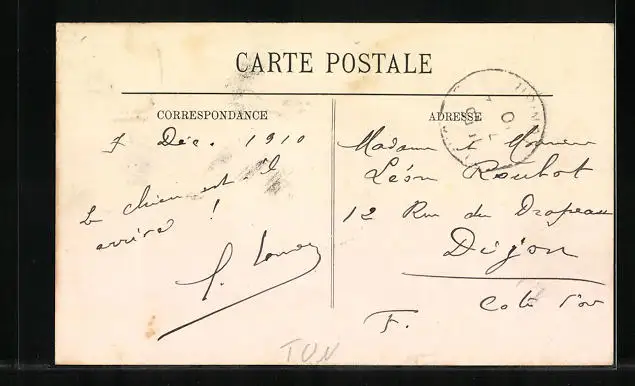 CARTE POSTALE
CORRESPONDANCE
ADRESSE
7 Déc. 1910
Le chien est-il
arrivé !
Madame et Monsieur
Léon Roubot
12 Rue du Drapeau
Dijon
Cote d'or
F.
TUN